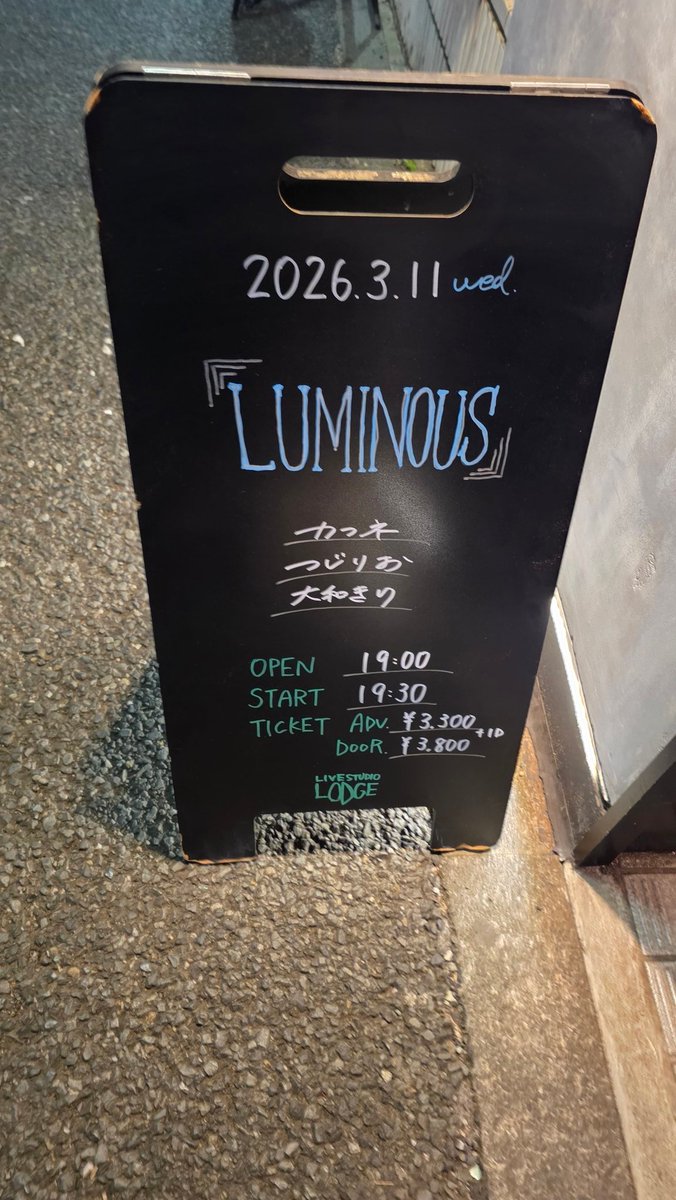 2026.3.11 wed.
LUMINOUS
カコネ
つじりお
大和きり
OPEN 19:00
START 19:30
TICKET ADV. ¥3.300
+1D
DOOR. ¥3.800
LIVESTUDIO
LODGE